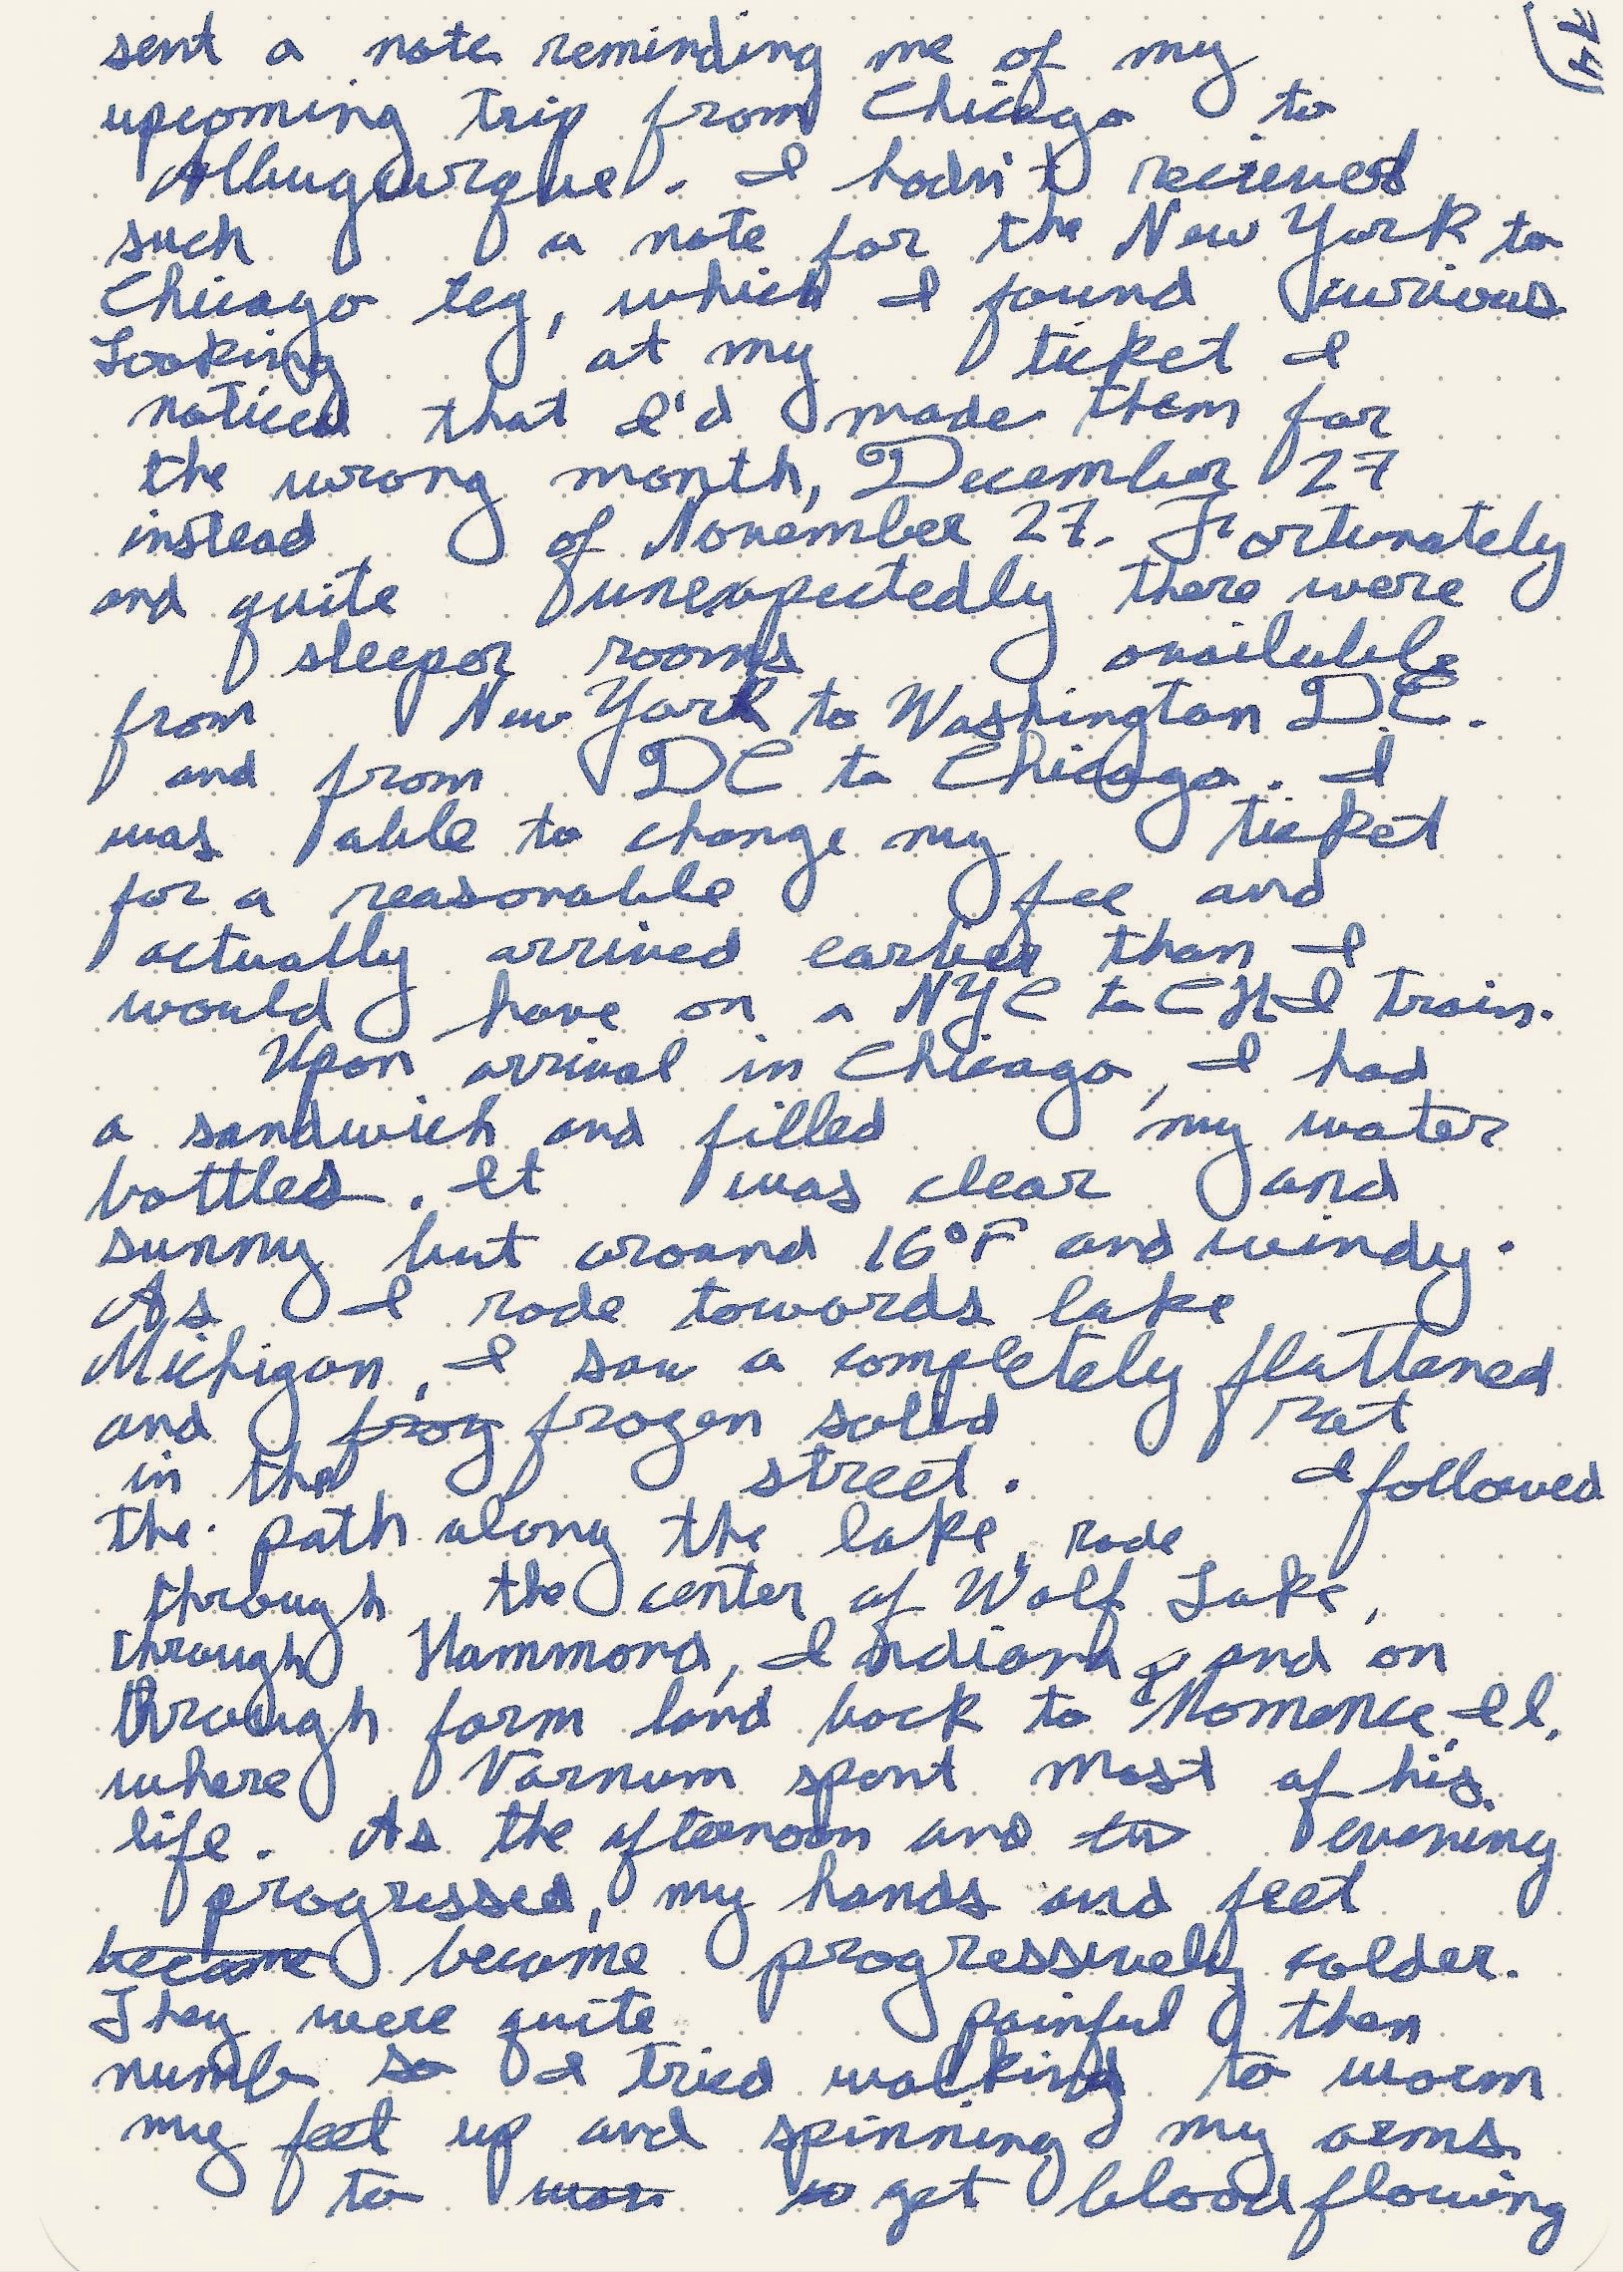 sent a note reminding me of my
upcoming trip from Chicago to
Albuquerque. I hadn't recieved
such a note for the New York to
Chicago leg, which I found curious
Looking at my ticket I
noticed that I'd made them for
the wrong month, December 27
instead of November 27. Fortunately
and quite unexpectedly there were
sleeper rooms available
from New York to Washington DC.
and from DC to Chicago. I
was able to change my ticket
for a reasonable fee and
actually arrived earlier than I
would have on a NYC to CHI train.
Upon arrival in Chicago, I had
a sandwich and filled my water
bottles. It was clear and
sunny but around 16°F and windy.
As I rode towards lake
Michigan, I saw a completely flattened
and frog frozen solid rat
in the street. I followed
the path along the lake, rode
through the center of Wolf Lake,
through Hammond, Indiana, and on
through farm land back to Momence, Il,
where Varnum spent most of his
life. As the afternoon and evening
progressed, my hands and feet
became become progressively colder.
They were quite painful then
numb so I tried walking to warm
my feet up and spinning my arms
to war to get blood flowing